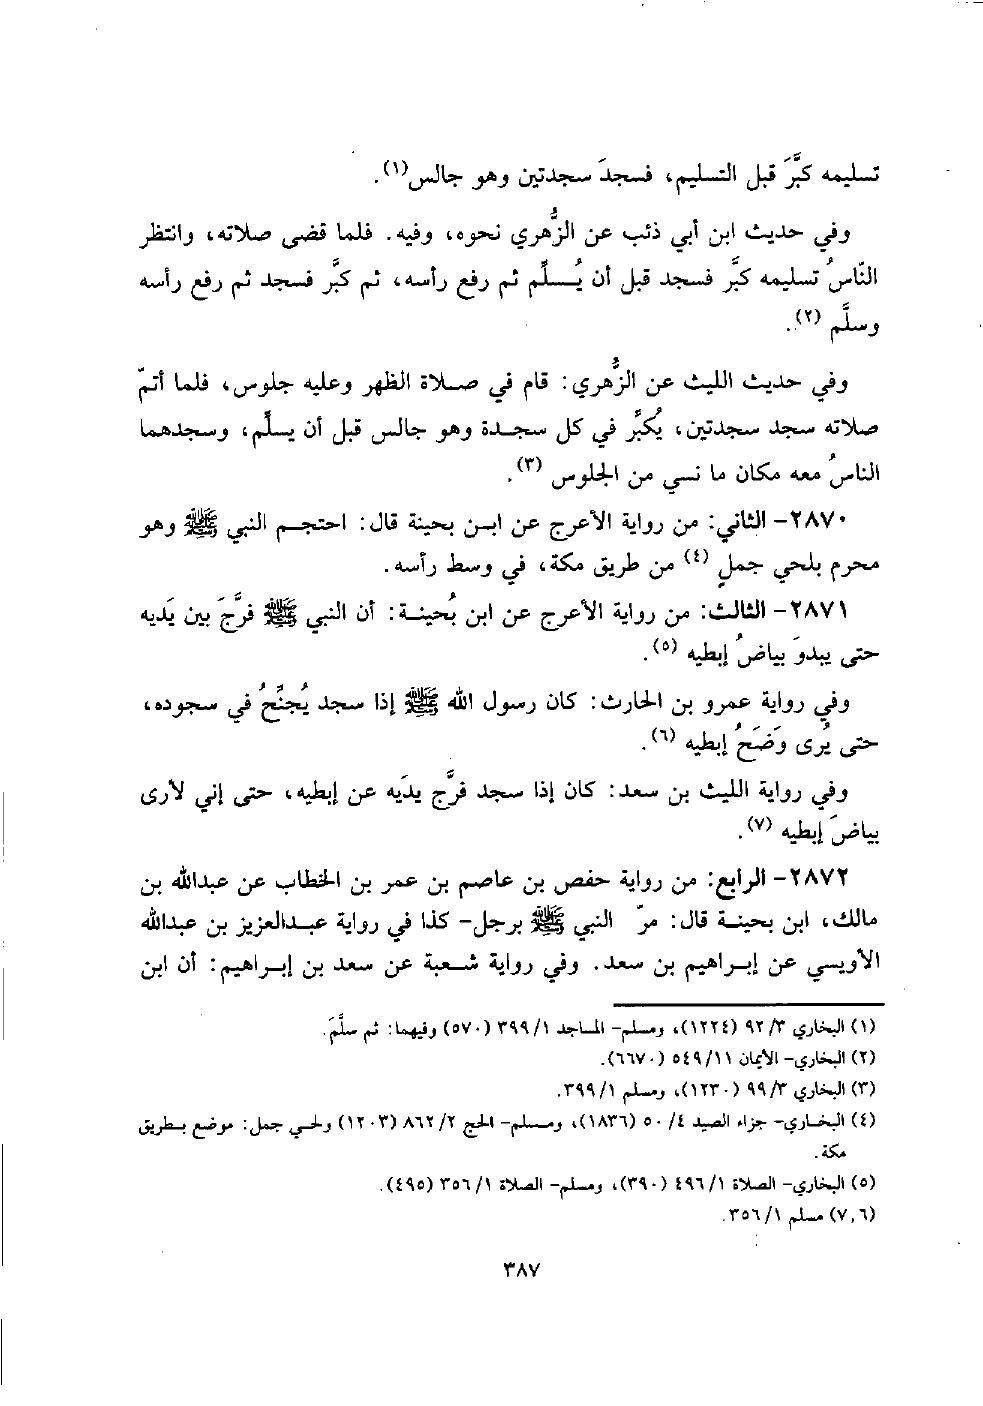 تسليمه كبَّرَ قبل التسليم، فسجدَ سجدتين وهو جالس(١).
وفي حديث ابن أبي ذئب عن الزُّهري نحوه، وفيه. فلما قضى صلاته، وانتظر
النّاسُ تسليمه كبَّر فسجد قبل أن يُسلِّم ثم رفع رأسه، ثم كبَّر فسجد ثم رفع رأسه
وسلَّم (٢).
وفي حديث الليث عن الزُّهري: قام في صلاة الظهر وعليه جلوس، فلما أتمّ
صلاته سجد سجدتين، يُكبِّر في كل سجدة وهو جالس قبل أن يسلِّم، وسجدهما
الناسُ معه مكان ما نسي من الجلوس (٣).
٢٨٧٠- الثاني: من رواية الأعرج عن ابن بحينة قال: احتجم النبي ﷺ وهو
محرم بلحي جملٍ (٤) من طريق مكة، في وسط رأسه.
٢٨٧١- الثالث: من رواية الأعرج عن ابن بُحينة: أن النبي ﷺ فرَّجَ بين يَديه
حتى يبدوَ بياضُ إبطيه (٥).
وفي رواية عمرو بن الحارث: كان رسول الله ﷺ إذا سجد يُجنِّحُ في سجوده،
حتى يُرى وَضَحُ إبطيه (٦).
وفي رواية الليث بن سعد: كان إذا سجد فرَّج يدَيه عن إبطيه، حتى إني لأرى
بياضَ إبطيه (٧).
٢٨٧٢- الرابع: من رواية حفص بن عاصم بن عمر بن الخطاب عن عبدالله بن
مالك، ابن بحينة قال: مرّ النبي ﷺ برجل- كذا في رواية عبدالعزيز بن عبدالله
الأويسي عن إبراهيم بن سعد. وفي رواية شعبة عن سعد بن إبراهيم: أن ابن
(١) البخاري ٣/ ٩٢ (١٢٢٤)، ومسلم- المساجد ١/ ٣٩٩ (٥٧٠) وفيهما: ثم سلَّمَ.
(٢) البخاري- الأيمان ١١/ ٥٤٩ (٦٦٧٠).
(٣) البخاري ٣/ ٩٩ (١٢٣٠)، ومسلم ١/ ٣٩٩.
(٤) البخاري- جزاء الصيد ٤/ ٥٠ (١٨٣٦)، ومسلم- الحج ٢/ ٨٦٢ (١٢٠٣) ولحي جمل: موضع بطريق
مكة.
(٥) البخاري- الصلاة ١/ ٤٩٦ (٣٩٠)، ومسلم- الصلاة ١/ ٣٥٦ (٤٩٥).
(٧,٦) مسلم ١/ ٣٥٦.
٣٨٧